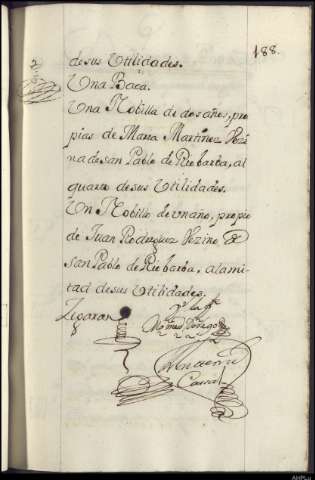 188.
de sus Utilidades.
Una Baca.
Una Nobilla de dos años, pro
pias de Maria Martinez Vezi
na de san Pablo de Riobarba, al
quarto de sus Utilidades.
Un Nobillo de un año, propio
de Juan Rodriguez Vezino de
san Pablo de Riobarba, a la mi
tad de sus Utilidades.
Ligaron
AHPLu